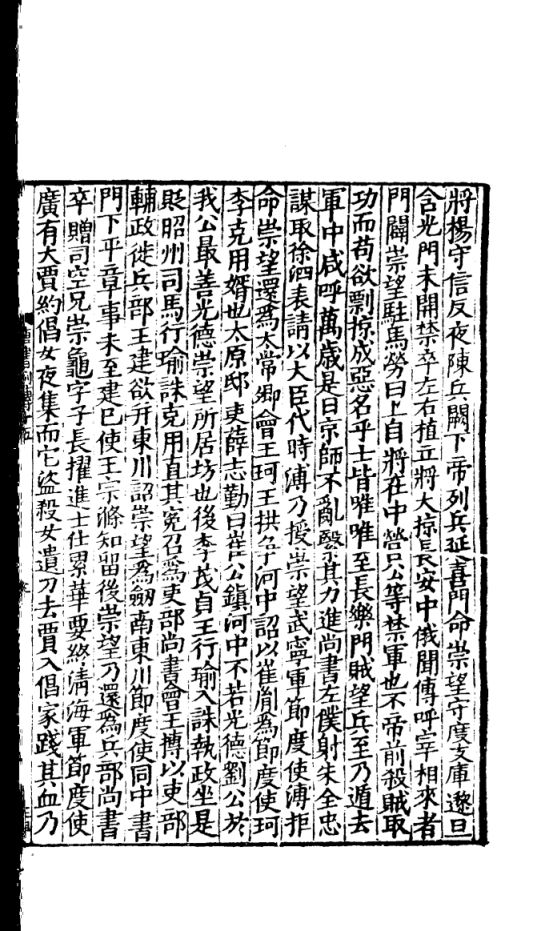 將楊守信反夜陳兵闕下帝列兵延喜門命崇望守度支庫遲旦
含光門未開禁卒左右植立將大掠長安中俄聞傳呼宰相來者
門闢崇望駐馬勞曰上自將在中營公等禁軍也不帝前殺賊取
功而苟欲剽掠成惡名乎士皆唯唯至長樂門賊望兵至乃遁去
軍中咸呼萬歲是日京師不亂繄其力進尚書左僕射朱全忠
謀取徐泗表請以大臣代時溥乃授崇望武寧軍節度使溥拒
命崇望還爲太常卿會王珂王拱爭河中詔以崔胤爲節度使珂
李克用婿也太原邸吏薛志勤曰崔公鎮河中不若光德劉公於
我公最善光德崇望所居坊也後李茂貞王行瑜入誅執政坐是
貶昭州司馬行瑜誅克用直其冤召爲吏部尚書會王摶以吏部
輔政徙兵部王建欲并東川詔崇望爲劒南東川節度使同中書
門下平章事未至建已使王宗滌知留後崇望乃還爲兵部尚書
卒贈司空兄崇龜字子長擢進士仕累華要終淸海軍節度使
廣有大賈約倡女夜集而它盜殺女遺刀去賈入倡家踐其血乃